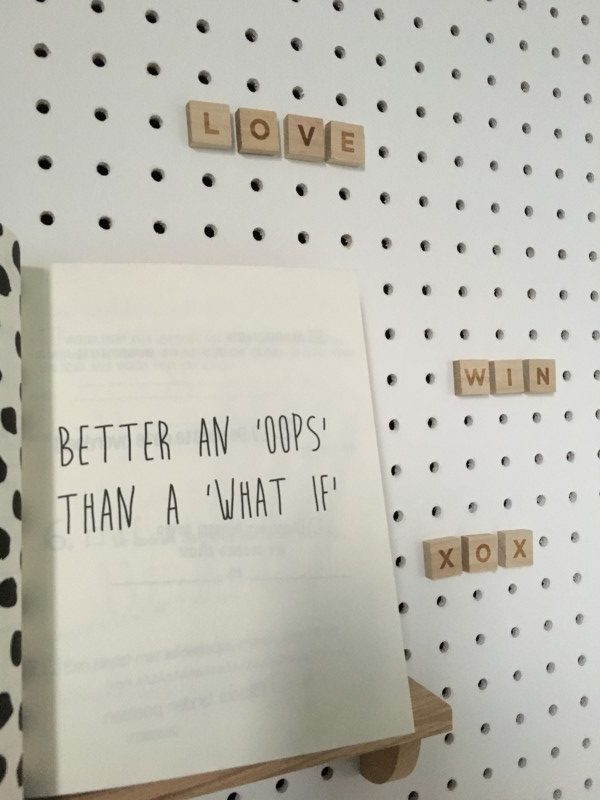 LOVE
WIN
XOX
BETTER AN 'OOPS'
THAN A 'WHAT IF'